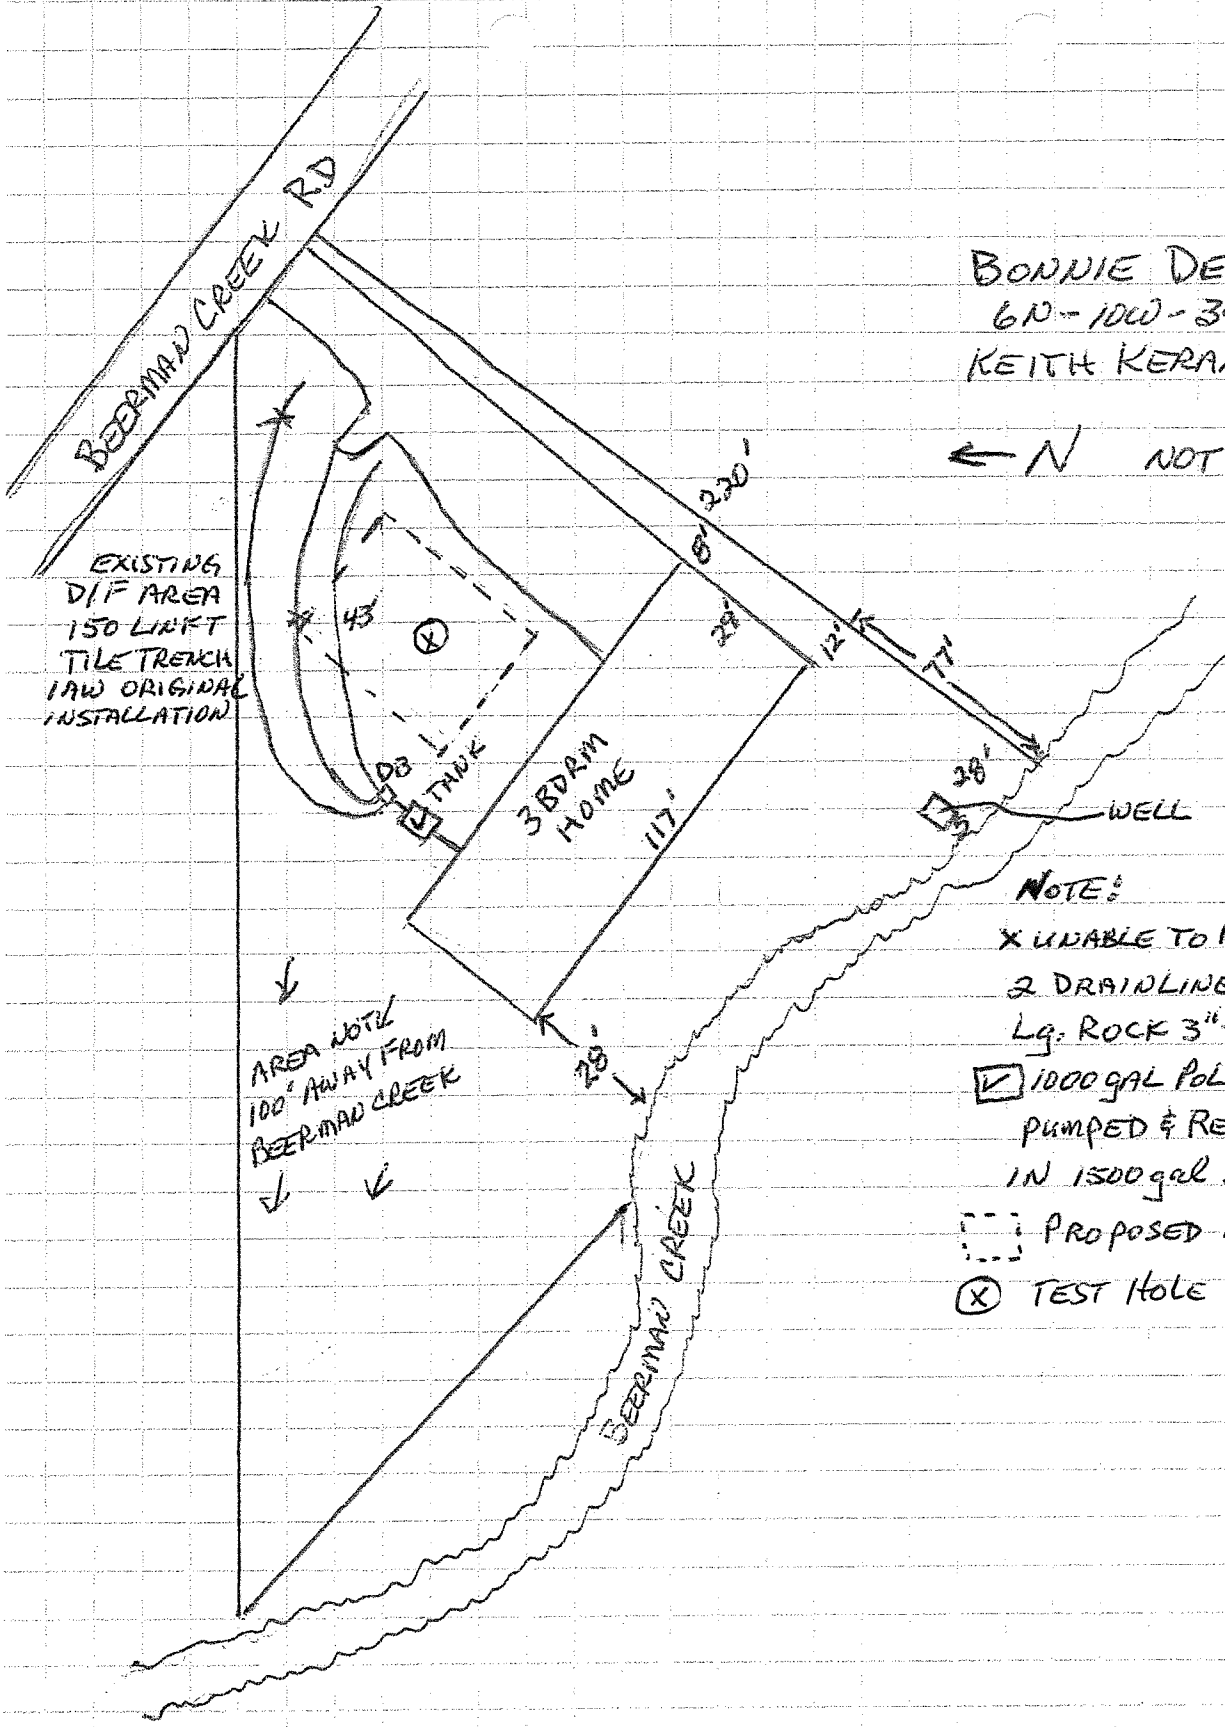 BEERMAN CREEK RD
BONNIE DE
6N-10W-3
KEITH KERA
← N NOT
220'
8'
29'
12'
77'
28'
WELL
EXISTING
D/F AREA
150 LINFT
TILE TRENCH
IAW ORIGINAL
INSTALLATION
43'
X
DB
TANK
3 BDRM
HOME
117'
28'
AREA NOT
100' AWAY FROM
BEERMAN CREEK
BEERMAN CREEK
NOTE:
X UNABLE TO
2 DRAINLINE
Lg. ROCK 3"
1000 gAL POL
PUMPED & RE
IN 1500 gal
PROPOSED
X TEST HOLE